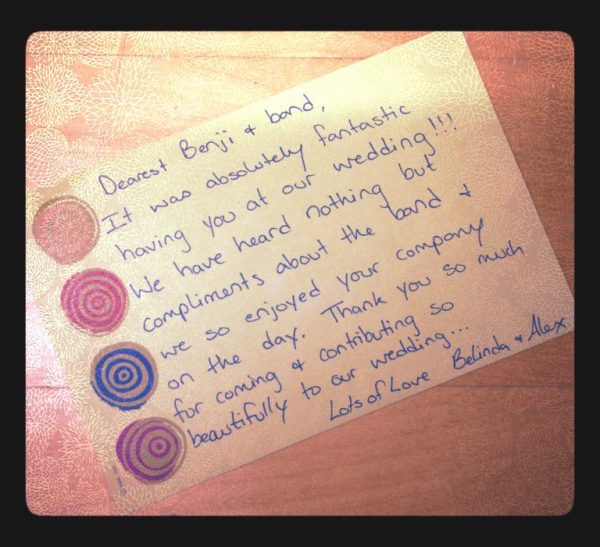 Dearest Benji & band,
It was absolutely fantastic
having you at our wedding!!!
We have heard nothing but
compliments about the band &
we so enjoyed your company
on the day. Thank you so much
for coming & contributing so
beautifully to our wedding...
Lots of Love Belinda & Alex